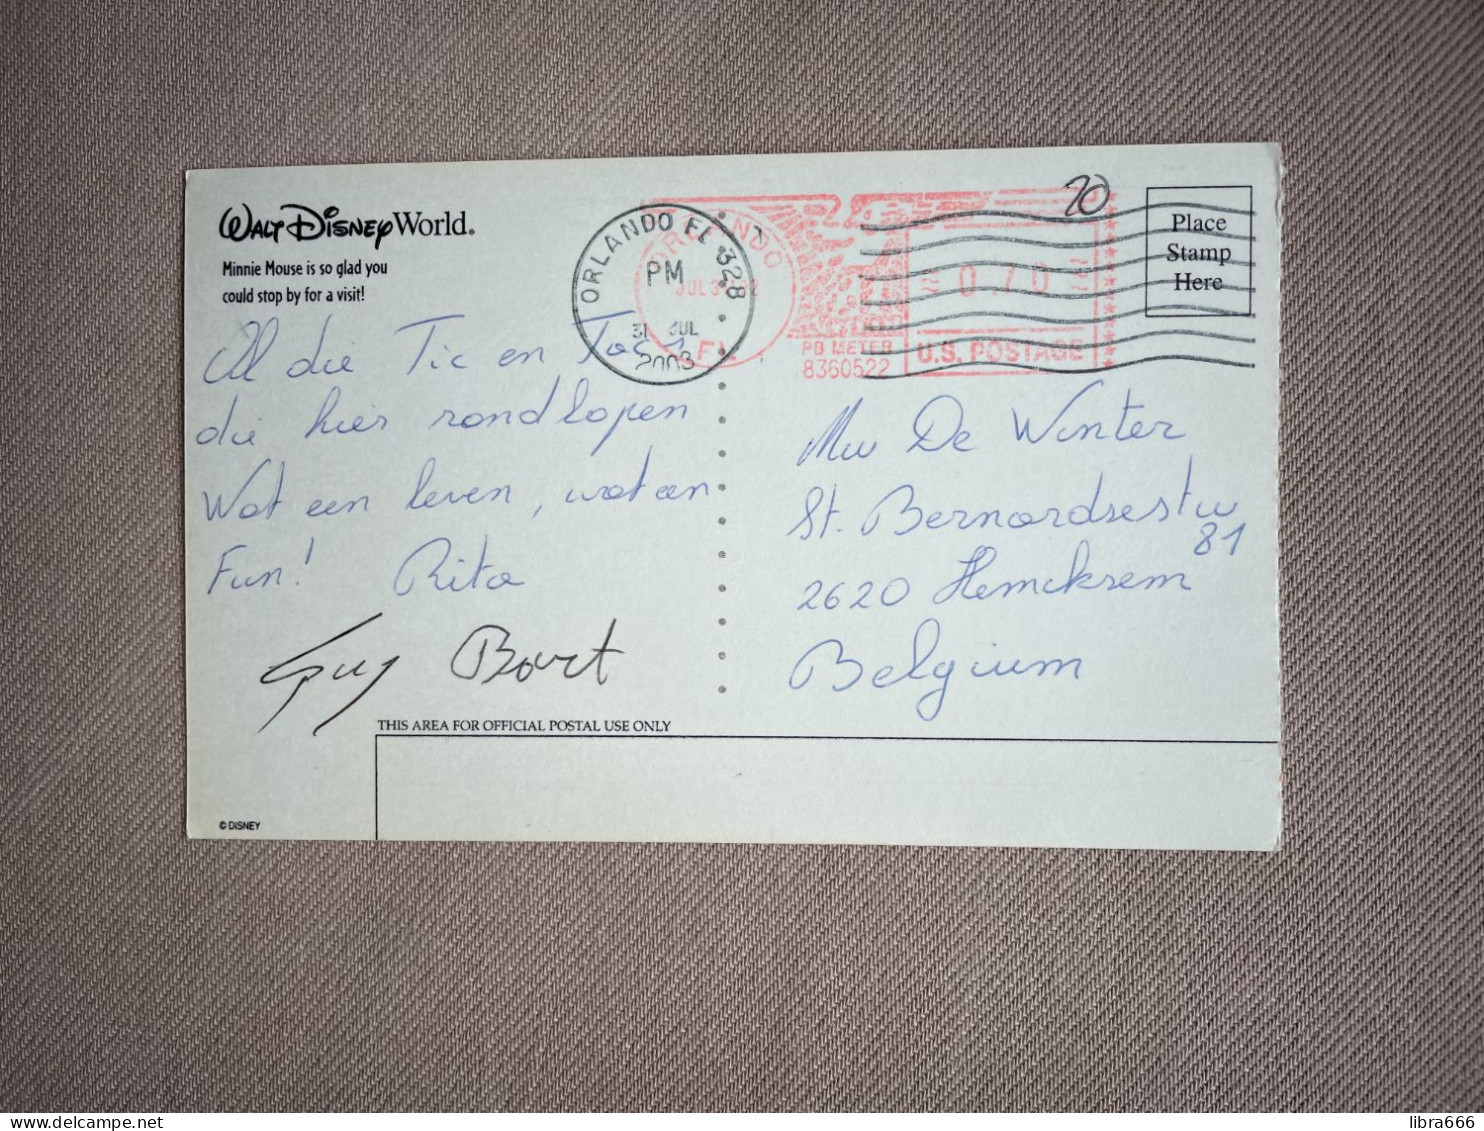 WALT DISNEY World.
Minnie Mouse is so glad you
could stop by for a visit!
Al die Tic en Tac's
die hier rondlopen
Wat een leven, wat een
Fun! Rita
Guy Bart
ORLANDO FL 328
PM
31 JUL
2003
ORLANDO
FL
PB METER
8360522
0.70
U.S. POSTAGE
70
Place
Stamp
Here
Mw De Winter
St. Bernardsestw
81
2620 Hemiksem
Belgium
THIS AREA FOR OFFICIAL POSTAL USE ONLY
© DISNEY
libra666